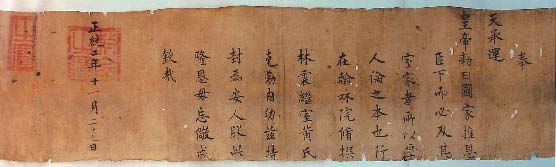 奉
天承運
皇帝敕曰國家推恩
臣下而必及其
室家者所以厚
人倫之本也行
在翰林院脩撰
林震繼室黃氏
克勤內助茲特
封為安人服此
隆恩毋忘儆戒
欽哉
正統年十一月二十三日